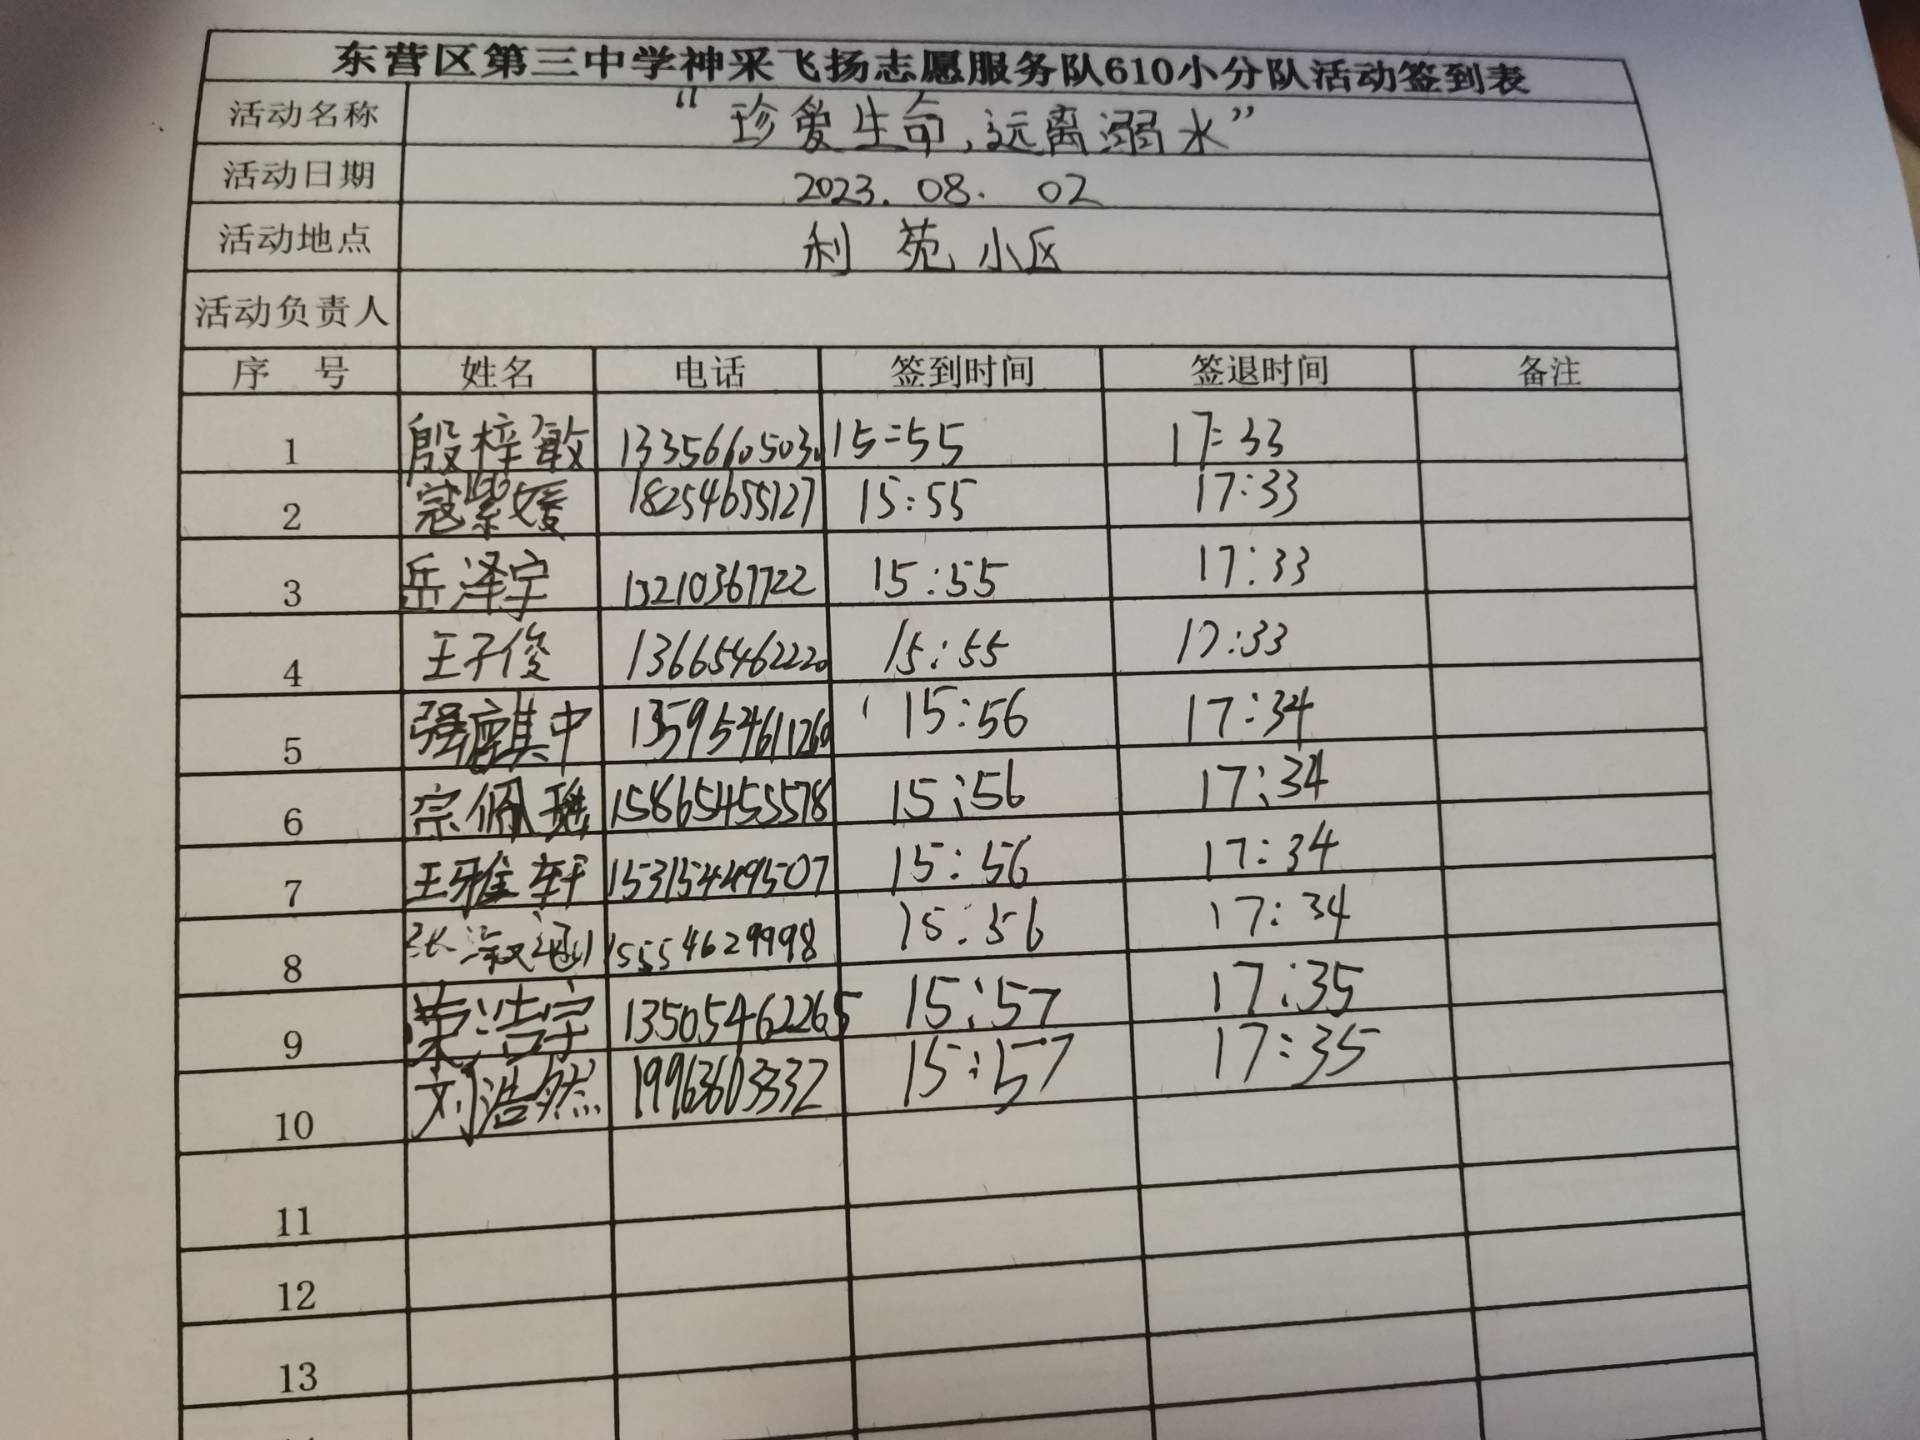 东营区第三中学神采飞扬志愿服务队610小分队活动签到表
活动名称 “珍爱生命,远离溺水”
活动日期 2023.08.02
活动地点 利苑小区
活动负责人
序 号 姓名 电话 签到时间 签退时间 备注
1 殷梓敢 13356605030 15:55 17:33
2 寇紫媛 18254655127 15:55 17:33
3 岳泽宇 13210367722 15:55 17:33
4 王子俊 13665462220 15:55 17:33
5 15:56 17:34
6 宗佩 15865455578 15:56 17:34
7 王雅轩 15315449507 15:56 17:34
8 张 15554629998 15:56 17:34
9 荣浩宇 13505462265 15:57 17:35
10 刘浩然 19963603332 15:57 17:35
11
12
13